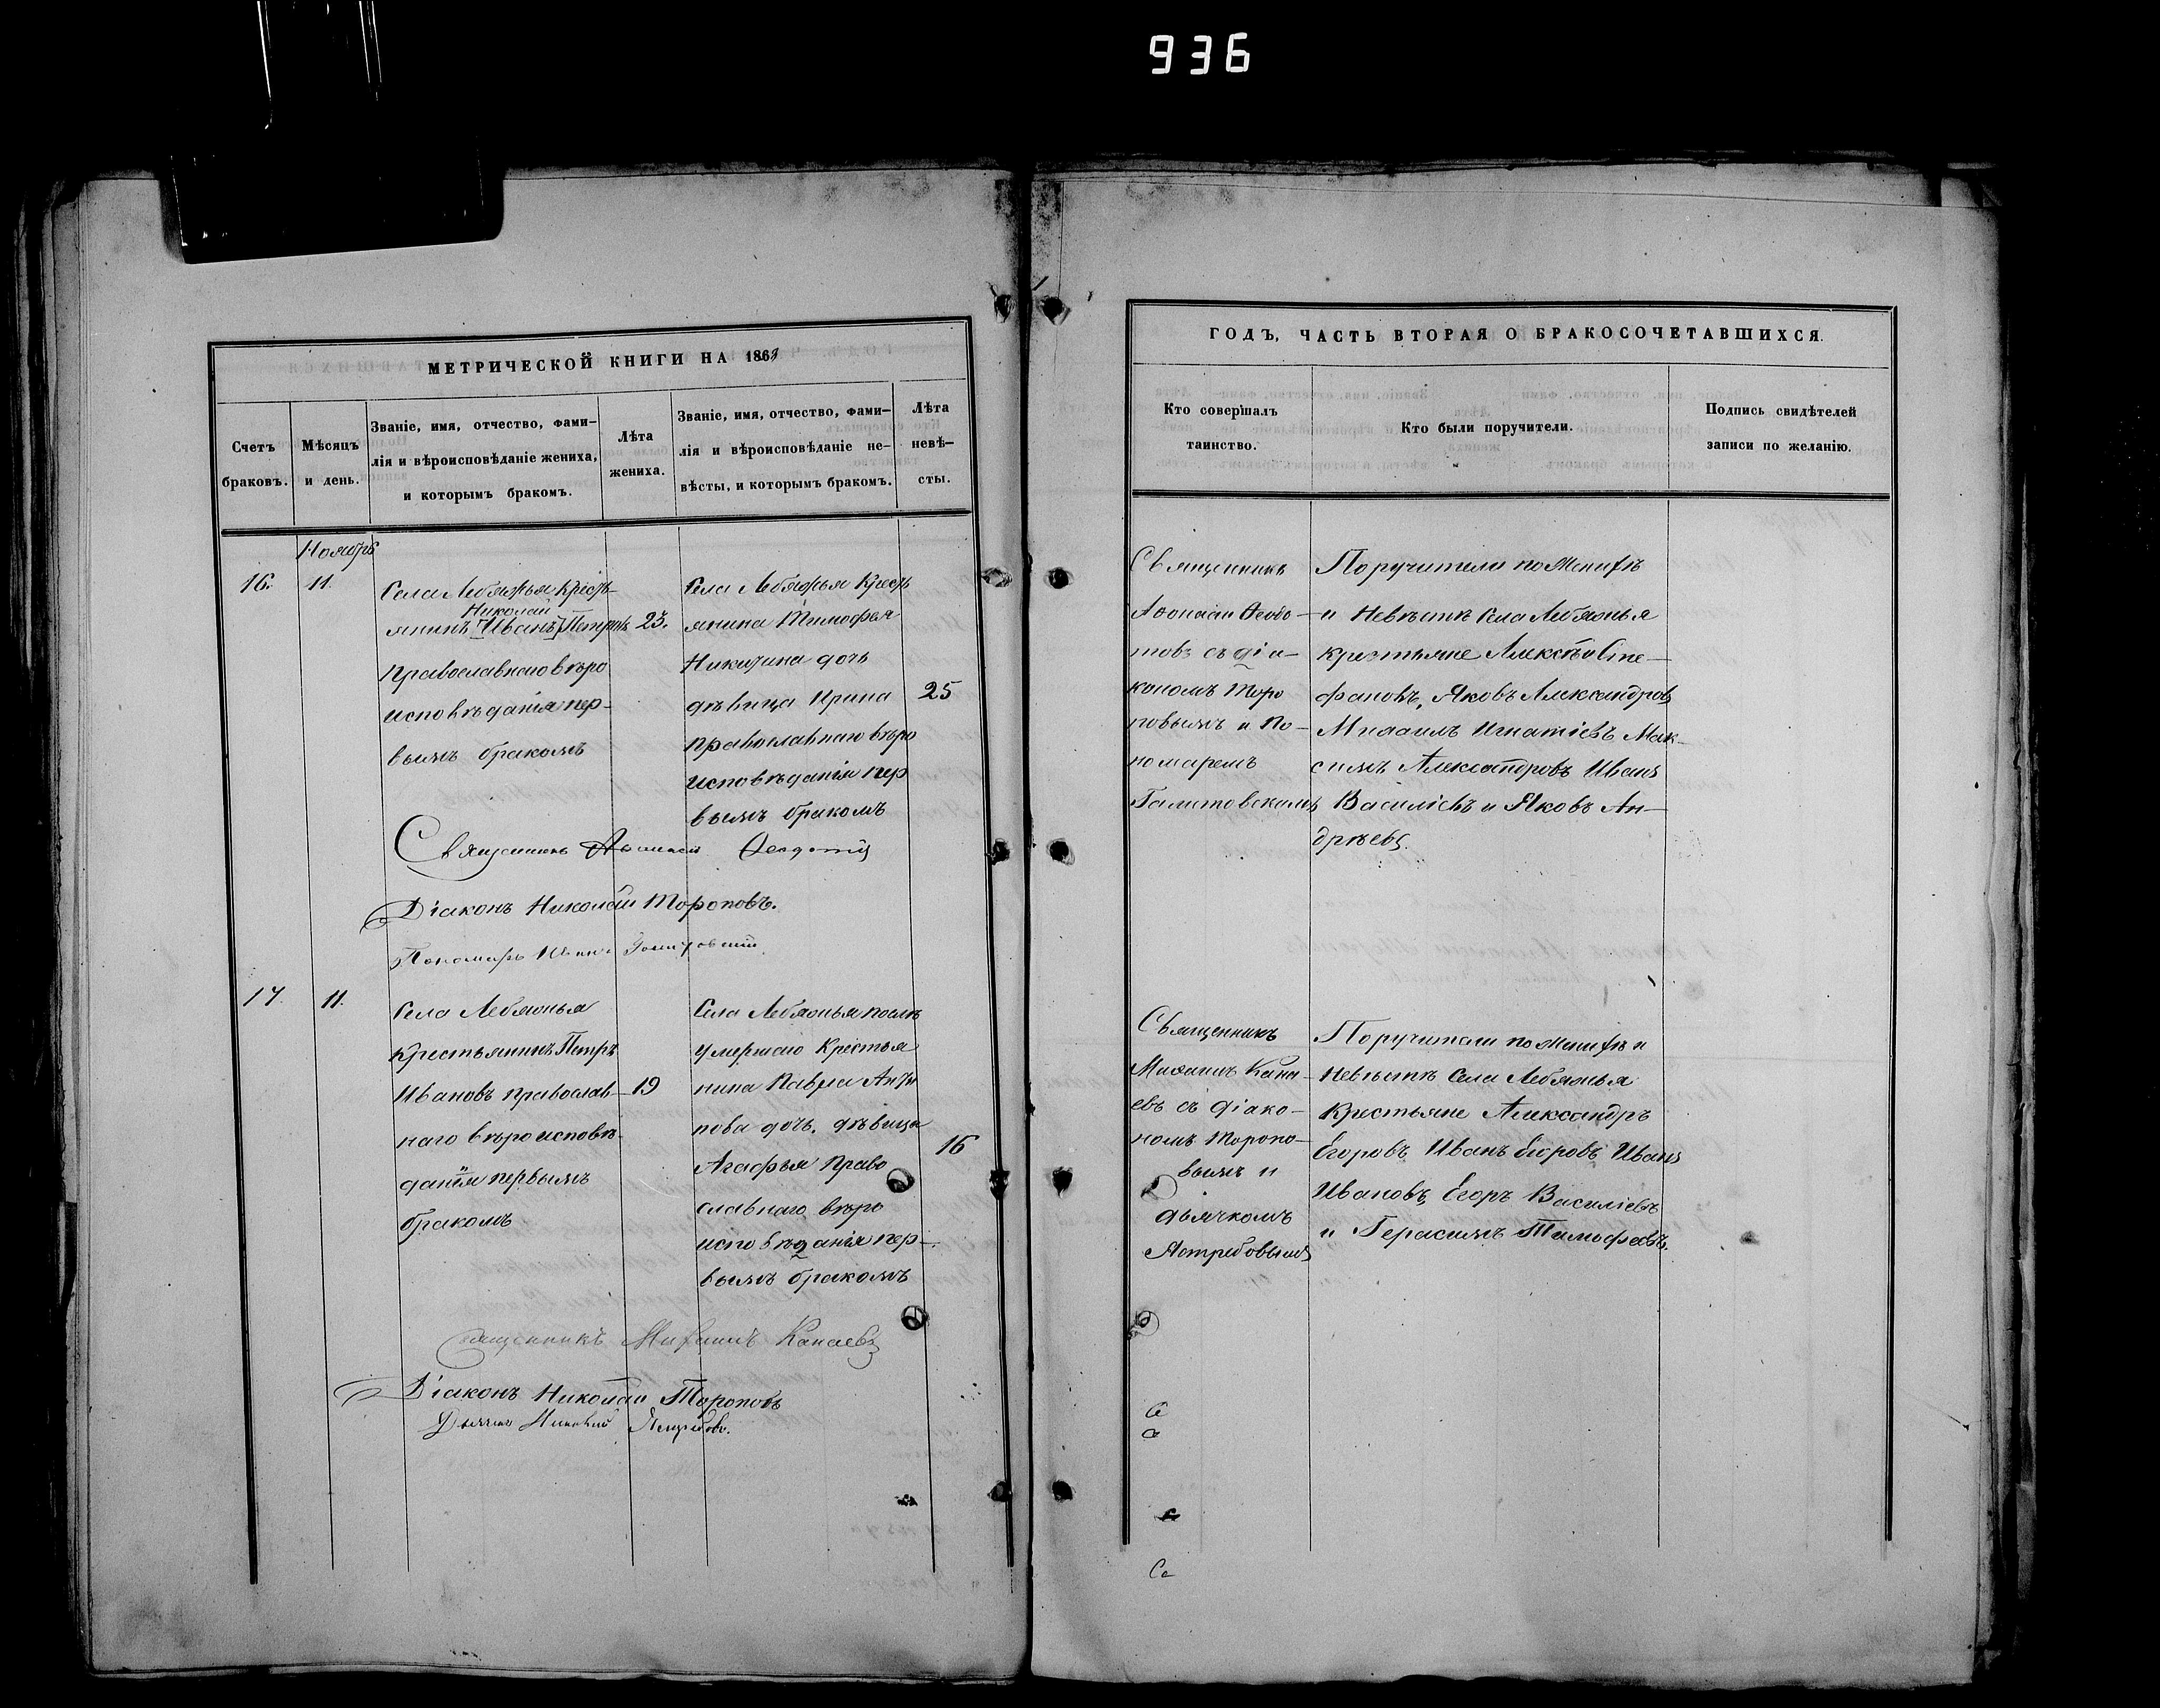 936
МЕТРИЧЕСКОЙ КНИГИ НА 186
Счетъ браковъ.
Мѣсяцъ и день.
Званіе, имя, отчество, фами-
лія и вѣроисповѣданіе жениха,
и которымъ бракомъ.
Лѣта жениха.
Званіе, имя, отчество, фами-
лія и вѣроисповѣданіе не-
вѣсты, и которымъ бракомъ.
Лѣта
невѣ-
сты.
Ноябрь
16.
11.
Села Лебяжья Кресть-
Николай
янинъ [Иванъ] Петровъ
Православнаго вѣро
исповѣданія пер-
вымъ бракомъ
23.
Села Лебяжья Кресть
янина Тимофея
Никитина дочь
дѣвица Ирина
Православнаго вѣро
исповѣданія пер
вымъ бракомъ
25
Священникъ
Діаконъ Николай Тороповъ.
Пономарь
17.
11.
Села Лебяжья
Крестьянинъ Петръ
Ивановъ православ-
наго вѣроисповѣ-
данія первымъ
бракомъ
19
Села Лебяжья послѣ
умершаго Крестья
нина Павла Анти
пова дочь, дѣвица
Агафья Право
славнаго вѣро
исповѣданія пер-
вымъ бракомъ
16
Священникъ Михаилъ Канаевъ
Діаконъ Николай Тороповъ
ГОДЪ, ЧАСТЬ ВТОРАЯ О БРАКОСОЧЕТАВШИХСЯ.
Кто совершалъ
таинство.
Кто были поручители.
Подпись свидѣтелей
записи по желанію.
Священникъ
Аѳонасій Ѳеодо-
товъ съ діа-
кономъ Торо
повымъ и По-
номаремъ
Поручители по Женихѣ
и Невѣстѣ Села Лебяжья
крестьяне Алексѣй Сте-
фановъ, Яковъ Александровъ
Михаилъ Игнатіевъ Мак-
симъ Александровъ Иванъ
Василіевъ и Яковъ Ан-
дрѣевъ.
Священникъ
Михаилъ Кана-
евъ съ діако-
номъ Торопо-
вымъ и
дьячкомъ
Ястребовымъ
Поручители по Женихѣ и
Невѣстѣ Села Лебяжья
Крестьяне Александръ
Егоровъ Иванъ Егоровъ Иванъ
Ивановъ, Егоръ Василіевъ
и Герасимъ Тимофеевъ.